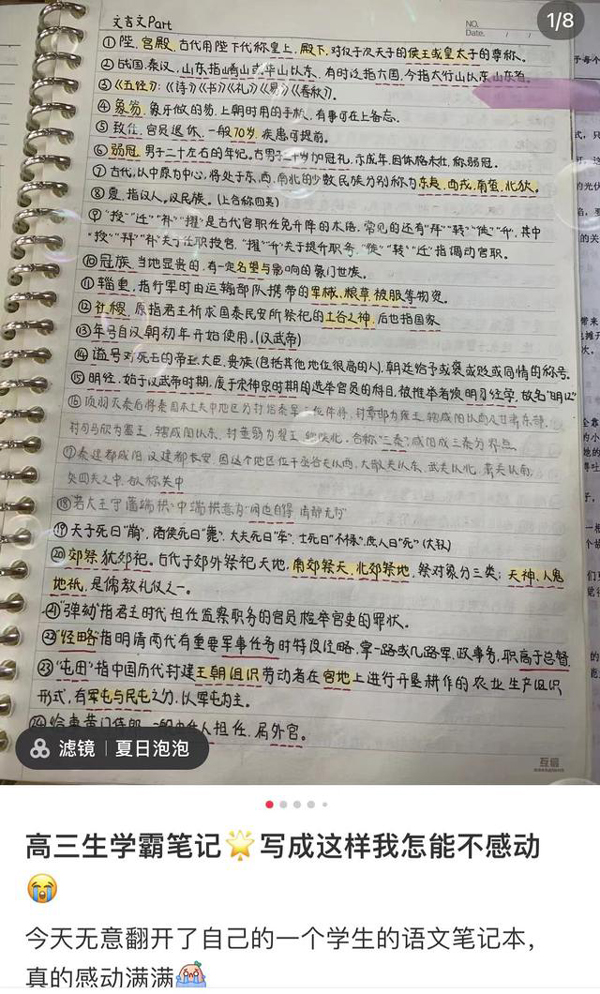 1/8
文言文Part
NO.
Date.
①陛,宫殿,古代用陛下代称皇上,殿下,对仅于次天子的侯王或皇太子的尊称。
②战国、秦汉,山东指崤山或华山以东、有时泛指六国,今指太行山以东,山东省。
③《五经》:《诗》《书》《礼》《易》《春秋》。
④象笏,象牙做的笏,上朝时用的手板,有事可在上备忘。
⑤致仕,官员退休,一般70岁,疾患可提前。
⑥弱冠,男子二十左右的年纪。古男子二十岁加冠礼,示成年,因体格未壮,称弱冠。
⑦古代,以中原为中心,将处于东,西,南北的少数民族分别称为东夷,西戎,南蛮,北狄。
⑧夏,指汉人。汉民族。(上合称四夷)
⑨“授”“迁”“补”“擢”是古代官职任免升降的术语,常见的还有“拜”“转”“徙”“升”,其中
“授”“拜”“补”关于任职授官,“擢”“升”关于提升职务,“徙”“转”“迁”指调动官职。
⑩冠族,当地显贵的,有一定名望与影响的豪门世族。
⑪辎重,指行军时由运输部队携带的军械、粮草、被服等物资。
⑫社稷,原指君王祈求国泰民安所祭祀的土谷之神,后也指国家
⑬年号自汉朝初年开始使用。(汉武帝)
⑭谥号对死去的帝王、大臣、贵族(包括其他地位很高的人),朝廷给予或褒或贬或同情的称号。
⑮明经,始于汉武帝时期,废于宋神宗时期的选举官员的科目,被推举者须明习经学,故名“明经”
⑯项羽灭秦后将秦国本土关中地区分封给秦军三位降将,封章邯为雍王,辖咸阳以西及甘肃东部,
封司马欣为塞王,辖咸阳以东,封董翳为翟王,管陕北,合称“三秦”,咸阳成三秦分界点
⑰秦建都咸阳,汉建都长安,因这个地区位于函谷关以西,大散关以东,武关以北,萧关以南,
处四关之中,故称关中
⑱若大王宁肃端拱”中“端拱”意为“闲适自得,清静无为”
⑲天子死曰“崩”,诸侯死曰“薨”,大夫死曰“卒”,士死曰“不禄”,庶人曰“死”
⑳郊祭,犹郊祀。古代于郊外祭祀天地,南郊祭天,北郊祭地,祭对象分三类:天神、人鬼
地祇,是儒教礼仪之一。
㉑“弹劾”指君主时代担任监察职务的官员检举官吏的罪状。
㉒“经略”指明清两代有重要军事任务时特设经略,掌一路或几路军、政事务,职高于总督
㉓“屯田”指中国历代封建王朝组织劳动者在官地上进行开垦耕作的农业生产组织
形式,有军屯与民屯之分,以军屯为主。
㉔给事黄门侍郎,担任,属外官。
滤镜 | 夏日泡泡
互信
高三生学霸笔记🌟写成这样我怎能不感动
😭
今天无意翻开了自己的一个学生的语文笔记本,
真的感动满满😭